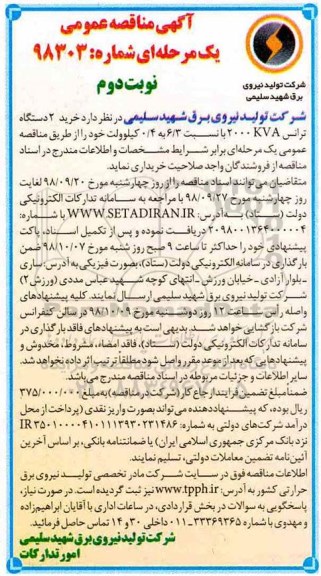 آگهی مناقصه عمومی
یک مرحله‌ای شماره: ۹۸۳۰۳
نوبت دوم
شرکت تولید نیروی
برق شهید سلیمی
شرکت تولید نیروی برق شهید سلیمی در نظر دارد خرید ۲ دستگاه
ترانس ۲۰۰۰ KVA با نسبت ۶/۳ به ۰/۴ کیلوولت خود را از طریق مناقصه
عمومی یک مرحله‌ای برابر شرایط مشخصات و اطلاعات مندرج در اسناد
مناقصه از فروشندگان واجد صلاحیت خریداری نماید.
متقاضیان می‌توانند اسناد مناقصه را از روز چهارشنبه مورخ ۹۸/۰۹/۲۰ لغایت
روز چهارشنبه مورخ ۹۸/۰۹/۲۷ با مراجعه به سامانه تدارکات الکترونیکی
دولت (ستاد) به آدرس: WWW.SETADIRAN.IR با شماره:
۲۰۹۸۰۰۱۳۶۴۰۰۰۰۰۴ دریافت نموده و پس از تکمیل اسناد، پاکت
پیشنهادی خود را حداکثر تا ساعت ۹ صبح روز شنبه مورخ ۹۸/۱۰/۰۷ ضمن
بارگذاری در سامانه الکترونیکی دولت (ستاد)، بصورت فیزیکی به آدرس: ساری
ـ بلوار آزادی ـ خیابان ورزش ـ انتهای کوچه شهید عباس مددی (ورزش ۲)
شرکت تولید نیروی برق شهید سلیمی ارسال نمایند. کلیه پیشنهادهای
واصله راس ساعت ۱۲ روز دوشنبه مورخ ۹۸/۱۰/۰۹ در سالن کنفرانس
شرکت بازگشایی خواهد شد. بدیهی است به پیشنهادهای فاقد بارگذاری در
سامانه تدارکات الکترونیکی دولت (ستاد)، فاقد امضاء، مشروط، مخدوش و
پیشنهادهایی که بعد از موعد مقرر واصل شود مطلقاً ترتیب اثر داده نخواهد شد.
سایر اطلاعات و جزئیات مربوطه در اسناد مناقصه مندرج می‌باشد.
ضمناً مبلغ تضمین فرایند ارجاع کار (شرکت در مناقصه) به مبلغ ۳۷۵/۰۰۰/۰۰۰
ریال بوده، که پیشنهاددهنده می‌تواند بصورت واریز نقدی (پرداخت از محل
درآمد شرکت‌های دولتی به شماره: IR ۳۵۰۱۰۰۰۰۴۱۰۱۱۱۳۹۳۰۲۳۱۴۸۶
نزد بانک مرکزی جمهوری اسلامی ایران) یا ضمانتنامه بانکی، بر اساس آخرین
آئین‌نامه تضمین معاملات دولتی، تسلیم نمایند.
اطلاعات مناقصه فوق در سایت شرکت مادر تخصصی تولید نیروی برق
حرارتی کشور به آدرس: www.tpph.ir نیز ثبت گردیده است. در صورت نیاز،
پاسخگویی به سوالات در بخش قراردادی، در ساعات اداری با آقایان ابراهیم‌زاده
و مهدوی با شماره ۳۳۳۶۹۳۶۵-۰۱۱ داخلی ۳۰ و ۱۴ تماس حاصل فرمائید.
شرکت تولید نیروی برق شهید سلیمی
امور تدارکات